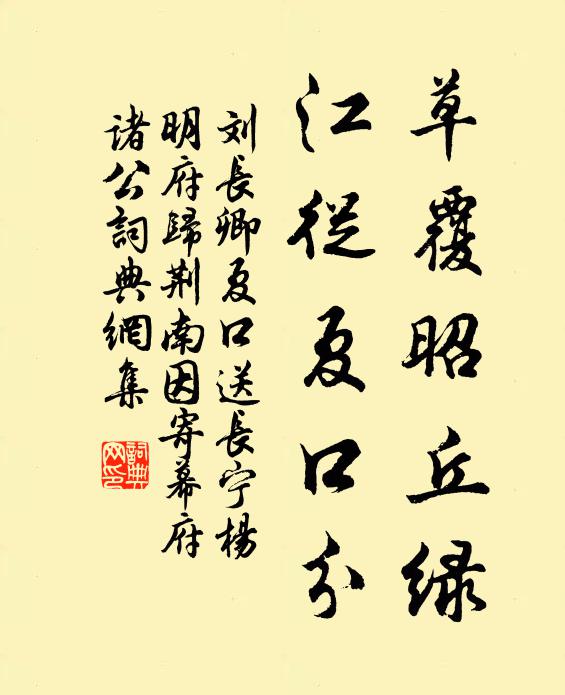 草覆昭丘绿
江從夏口分
刘長卿夏口送長宁楊
明府歸荆南因寄幕府
諸公詞典網集
詞典
网印